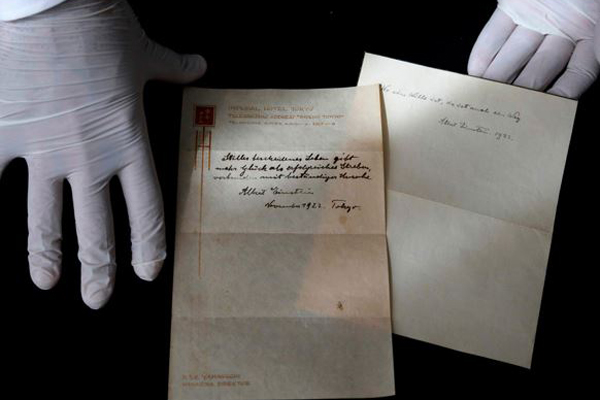 IMPERIAL HOTEL TOKYO
TELEGRAPHIC ADDRESS
TELEPHONE GINZA
Stilles bescheidenes Leben gibt
mehr Glück als erfolgreiches Streben,
verbunden mit beständiger Unruhe.
Albert Einstein
November 1922. Tokyo.
YAMAGUCHI
MANAGING DIRECTOR
Wo ein Wille ist, da ist auch ein Weg
Albert Einstein. 1922.